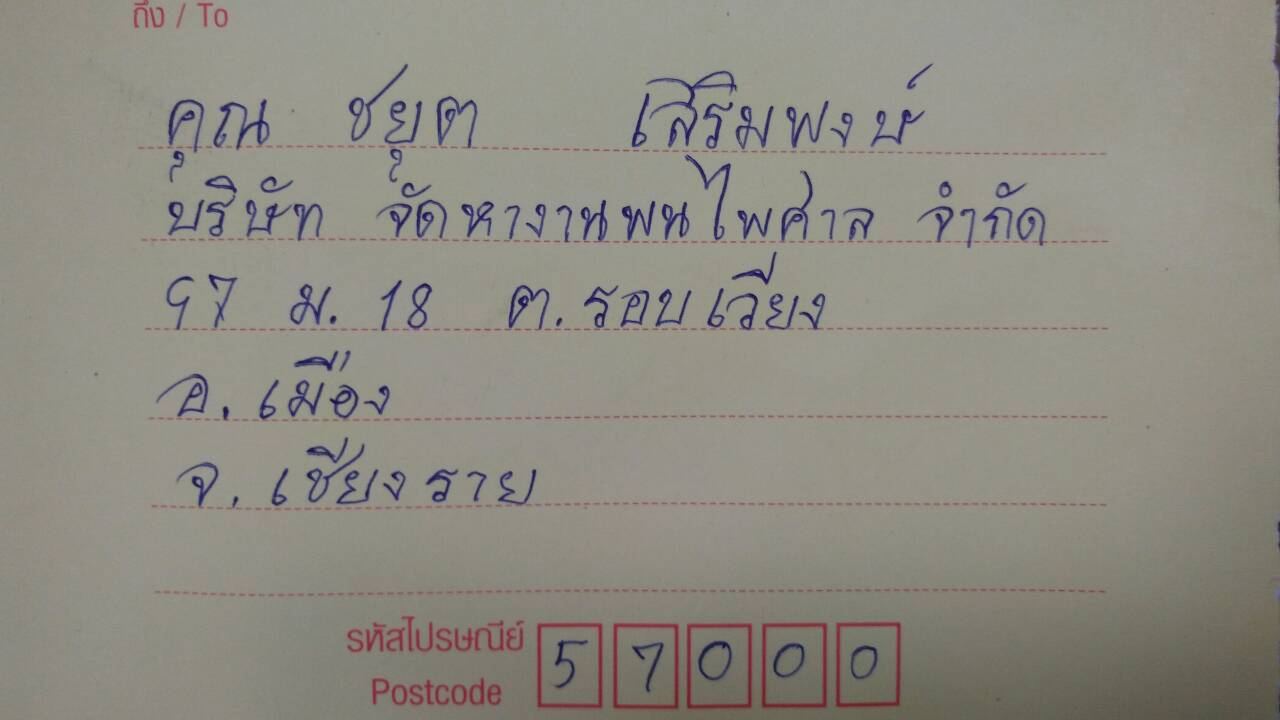 ถึง / To
คุณ ชยุต เสริมพงษ์
บริษัท จัดหางานพนไพศาล จำกัด
97 ม. 18 ต. รอบเวียง
อ. เมือง
จ. เชียงราย
รหัสไปรษณีย์ 57000
Postcode